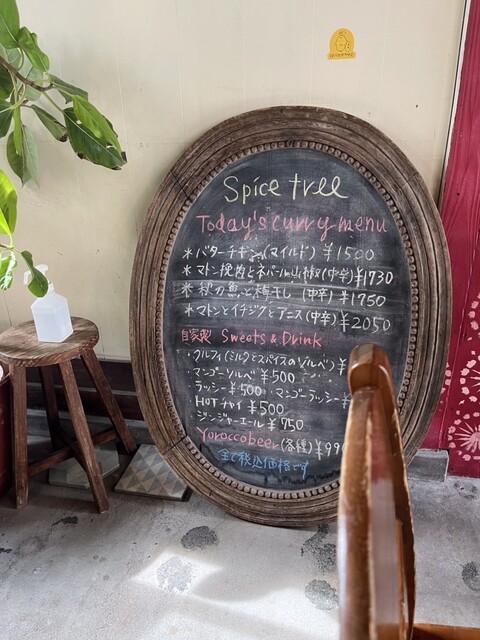 Spice tree
Today's curry menu
＊バターチキン(マイルド) ¥1500
＊マトン挽肉とネパール山椒(中辛)¥1730
＊秋の魚と梅干し (中辛) ¥1750
＊マトンとイチジクとアニス(中辛)¥2050
自家製 Sweets & Drink
・クルフィ(ミルクとスパイスのソルベ) ¥
マンゴーソルベ ¥500
ラッシー ¥500 ・マンゴーラッシー ¥
HOTチャイ ¥500
ジンジャーエール ¥750
Yoroccobeer(各種) ¥99
全て税込価格です